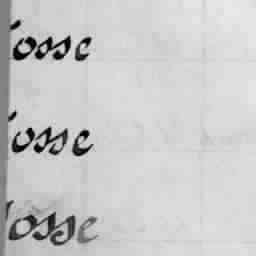 osse
osse
osse